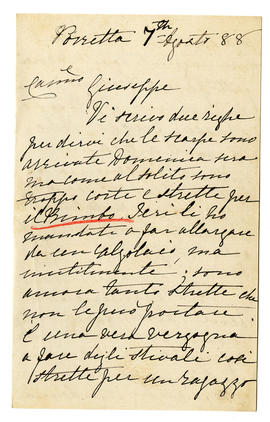 Boretta 7th Agosto 88
Carmo Giuseppe
Vi scrivo due righe
per dirvi che le scarpe sono
arrivate Domenica sera
ma come al solito sono
troppo corte e strette per
il Bimbo. Ieri li ho
mandate a far allargare
da un Calzolaio, ma
inutilmente; sono
ancora tanto strette che
non le può portare.
È una vera vergogna
a fare degli stivali così
strette per un ragazzo